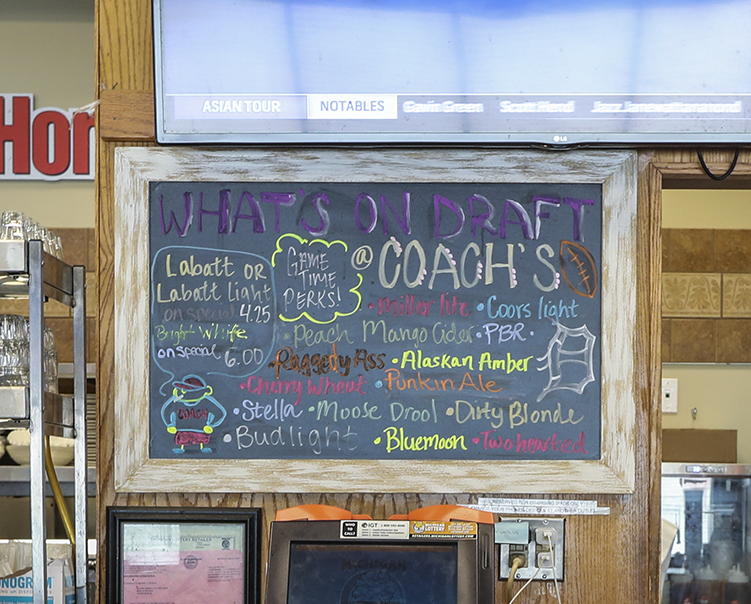 ASIAN TOUR NOTABLES Gavin Green Scott Hend
LG
Hor
WHAT'S ON DRAFT
@ COACH'S
GAME
TIME
PERKS!
LaBatt OR
Labatt Light
on special 4.25
on special 6.00
COACH
• Miller lite • Coors light
• Peach Mango Cider • PBR •
• Raggedy Ass • Alaskan Amber
• Cherry Wheat • Punkin Ale
• Stella • Moose Drool • Dirty Blonde
• Bud light • Bluemoon • Two hearted
WHO TO CALL? IGT
RETAILERS.MICHIGANLOTTERY.COM
NOGRAM